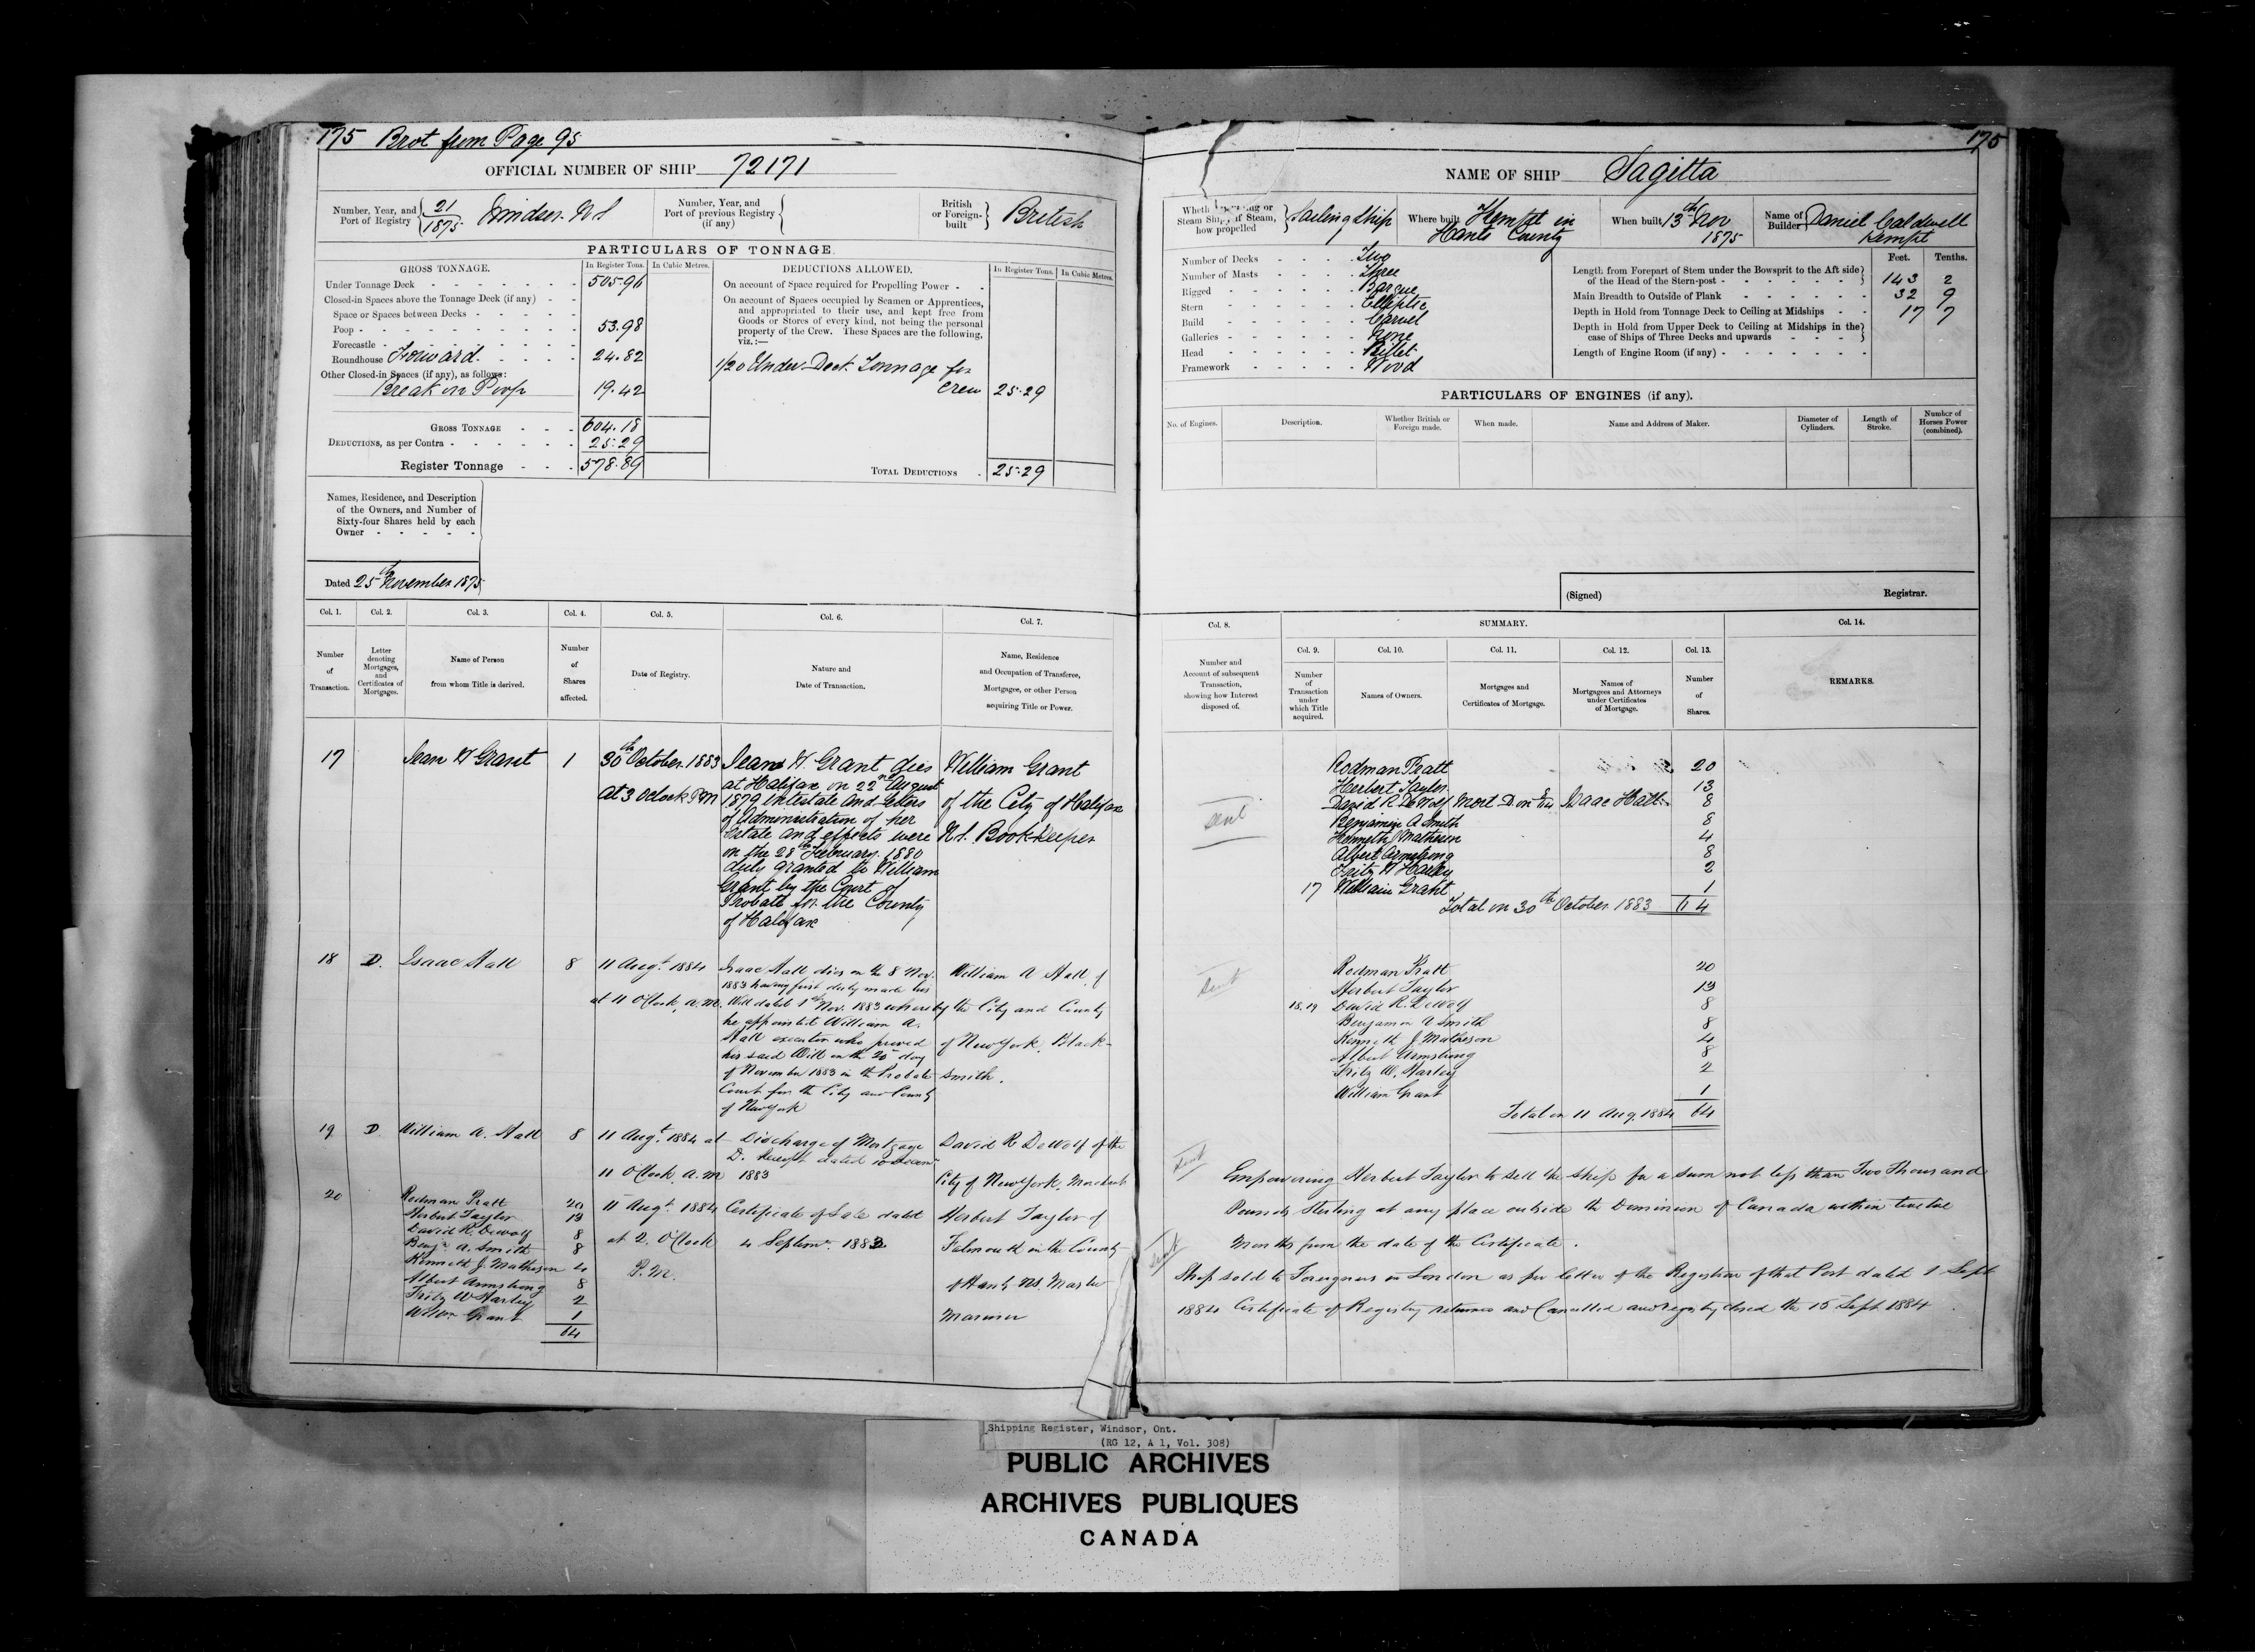 175 Brot from Page 95
OFFICIAL NUMBER OF SHIP 72171
Number, Year, and Port of Registry 21/1875 Windsor N S
Number, Year, and Port of previous Registry (if any)
British or Foreign-built British
PARTICULARS OF TONNAGE.
GROSS TONNAGE. In Register Tons. In Cubic Metres.
Under Tonnage Deck 505.96
Closed-in Spaces above the Tonnage Deck (if any)
Space or Spaces between Decks
Poop 53.98
Forecastle
Roundhouse Forward 24.82
Other Closed-in Spaces (if any), as follows:
Break in Poop 19.42
GROSS TONNAGE 604.18
DEDUCTIONS, as per Contra 25.29
Register Tonnage 578.89
DEDUCTIONS ALLOWED. In Register Tons. In Cubic Metres.
On account of Space required for Propelling Power
On account of Spaces occupied by Seamen or Apprentices,
and appropriated to their use, and kept free from
Goods or Stores of every kind, not being the personal
property of the Crew. These Spaces are the following,
viz.:—
1/20 Under Deck Tonnage for
Crew 25.29
TOTAL DEDUCTIONS 25.29
Names, Residence, and Description
of the Owners, and Number of
Sixty-four Shares held by each
Owner
Dated 25th November 1875
175
NAME OF SHIP Sagitta
Sailing Ship
Steam Ship, if Steam, how propelled
Where built Kempt in Hants County
When built 13th Nov 1875
Name of Builder Daniel Caldwell Kempt
Number of Decks Two
Number of Masts Three
Rigged Barque
Stern Elliptic
Build Carvel
Galleries None
Head Billet
Framework Wood
Feet. Tenths.
Length from Forepart of Stem under the Bowsprit to the Aft side
of the Head of the Stern-post 143 2
Main Breadth to Outside of Plank 32 9
Depth in Hold from Tonnage Deck to Ceiling at Midships 17 7
Depth in Hold from Upper Deck to Ceiling at Midships in the
case of Ships of Three Decks and upwards
Length of Engine Room (if any)
PARTICULARS OF ENGINES (if any).
No. of Engines. Description. Whether British or Foreign made. When made. Name and Address of Maker. Diameter of Cylinders. Length of Stroke. Number of Horses Power (combined).
(Signed) Registrar.
Col. 1. Col. 2. Col. 3. Col. 4. Col. 5. Col. 6. Col. 7.
Number of Transaction.
Letter denoting Mortgages, and Certificates of Mortgages.
Name of Person from whom Title is derived.
Number of Shares affected.
Date of Registry.
Nature and Date of Transaction.
Name, Residence and Occupation of Transferee, Mortgagee, or other Person acquiring Title or Power.
Col. 8. SUMMARY. Col. 14.
Number and Account of subsequent Transaction, showing how Interest disposed of.
Col. 9. Col. 10. Col. 11. Col. 12. Col. 13.
Number of Transaction under which Title acquired.
Names of Owners.
Mortgages and Certificates of Mortgage.
Names of Mortgagees and Attorneys under Certificates of Mortgage.
Number of Shares.
REMARKS.
17 Jean W Grant 1
30th October 1883
at 3 Oclock PM
Jean W. Grant dies
at Halifax on 22nd August
1879 intestate and letters
of administration of her
Estate and effects were
on the 28th February 1880
duly granted to William
Grant by the Court of
Probate for the County
of Halifax
William Grant
of the City of Halifax
N.S. Bookkeeper
sent
Rodman Pratt 20
Herbert Taylor 13
David R. DeWolf Mort D Isaac Hall 8
Benjamin A Smith 8
Kenneth J Matheson 4
Albert Armstrong 8
Fritz W Harley 2
17 William Grant 1
Total on 30th October 1883 64
18 D. Isaac Hall 8
11 Augt. 1884
at 11 O'Clock, a.m.
Isaac Hall dies on the 8 Nov.
1883 having first duly made his
Will dated 1st Nov. 1883 whereby
he appointed William A.
Hall executor who proved
his said Will on the 20 day
of November 1883 in the Probate
Court for the City and County
of New York
William A Hall of
the City and County
of New York, Black-
smith.
sent
Rodman Pratt 20
Herbert Taylor 13
18.19 David R. DeWolf 8
Benjamin A Smith 8
Kenneth J Matheson 4
Albert Armstrong 8
Fritz W. Harley 2
William Grant 1
Total on 11 Aug. 1884 64
19 D William A. Hall 8
11 Augt. 1884 at
11 O'Clock a.m
Discharge of Mortgage
D. Receipt dated 10
1883
David R DeWolf of the
City of New York, Merchant
20
Rodman Pratt 20
Herbert Taylor 13
David R. Dewolf 8
Benjn A. Smith 8
Kenneth J. Matheson 4
Albert Armstrong 8
Fritz W Harley 2
Willm Grant 1
64
11 Augt. 1884
at 2. O'Clock
P.M.
Certificate of Sale dated
4 Septmr. 1883
Herbert Taylor of
Falmouth in the County
of Hants NS Master
Mariner
sent
Empowering Herbert Taylor to sell the ship for a sum not less than Two Thousand
Pounds Sterling at any place outside the Dominion of Canada within twelve
Months from the date of the Certificate.
sent
Ship sold to Foreigners in London as per letter of the Registrar of that Port dated 1 Sept
1884 Certificate of Registry returned and Cancelled and registry closed the 15 Sept 1884.
Shipping Register, Windsor, Ont.
(RG 12, A 1, Vol. 308)
PUBLIC ARCHIVES
ARCHIVES PUBLIQUES
CANADA